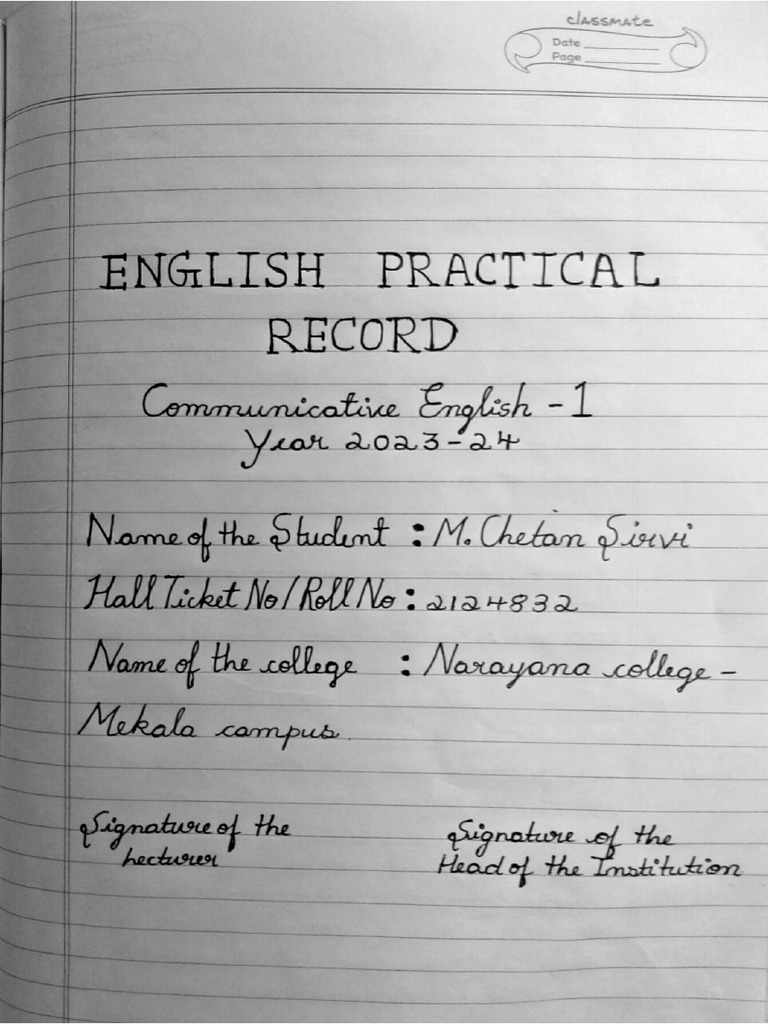 classmate
Date
Page
ENGLISH PRACTICAL
RECORD
Communicative English - 1
Year 2023-24
Name of the Student : M. Chetan Sirvi
Hall Ticket No/Roll No : 2124832
Name of the college : Narayana college -
Mekala campus
Signature of the
Lecturer
Signature of the
Head of the Institution